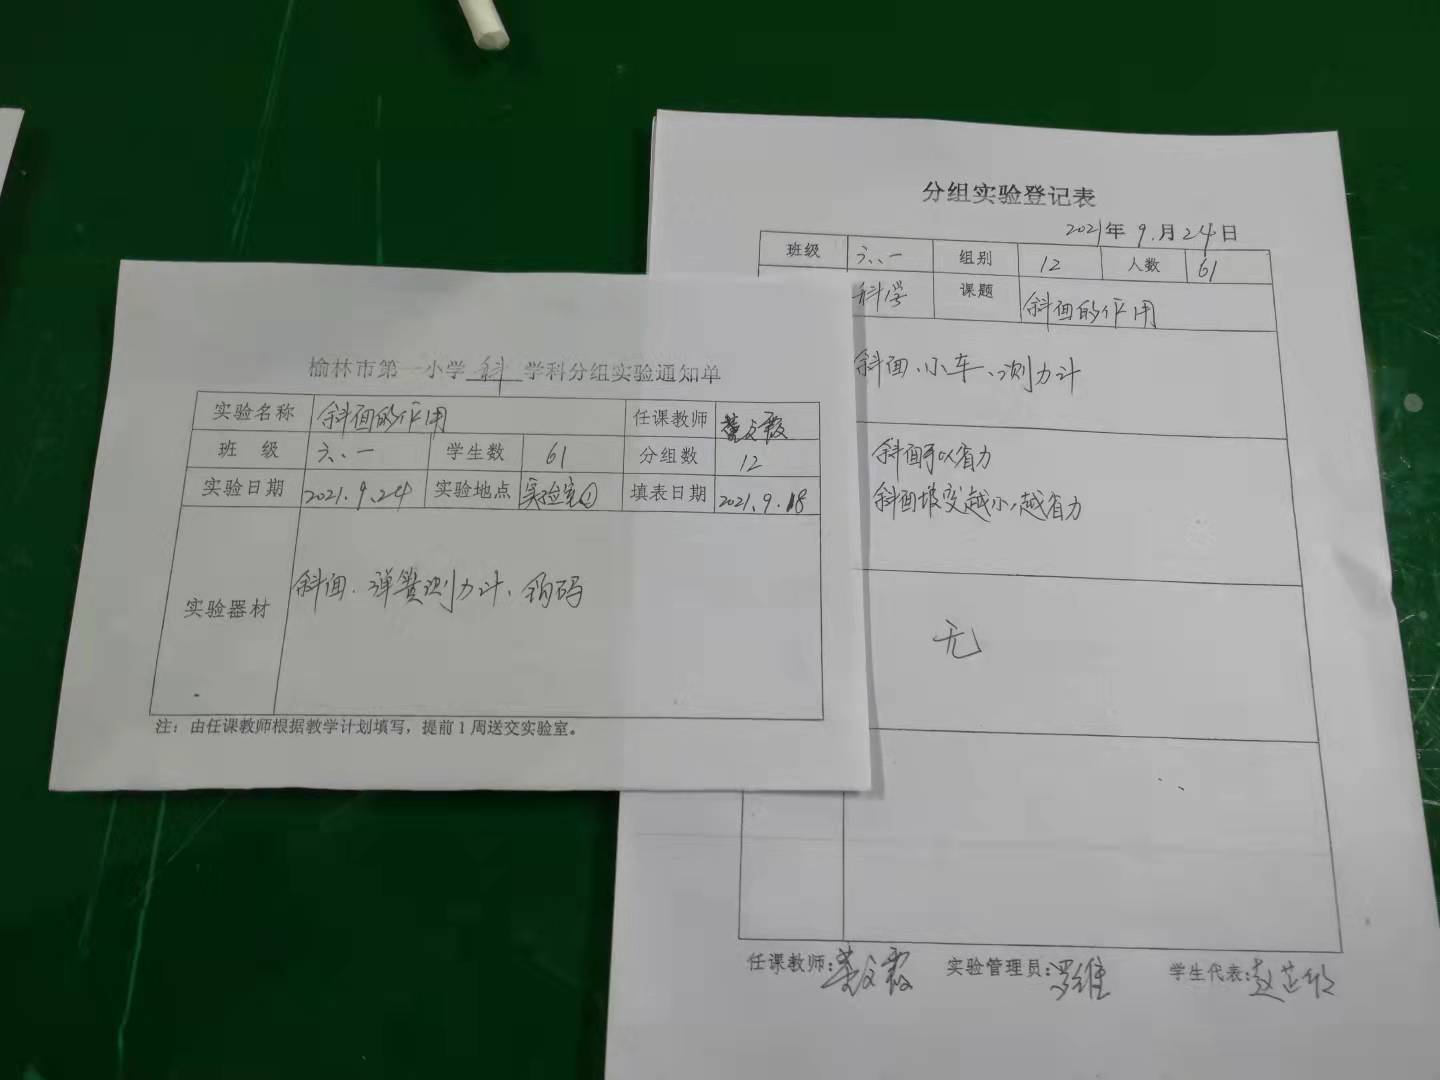 榆林市第一小学科学科分组实验通知单
实验名称 斜面的作用 任课教师
班 级 六、一 学生数 61 分组数 12
实验日期 2021.9.24 实验地点 实验室① 填表日期 2021.9.18
实验器材 斜面、弹簧测力计、钩码
注：由任课教师根据教学计划填写，提前1周送交实验室。
分组实验登记表
2021年9.月24日
班级 六、一 组别 12 人数 61
科学 课题 斜面的作用
斜面、小车、测力计
斜面可以省力
斜面坡度越小，越省力
无
任课教师: 实验管理员:罗维 学生代表: